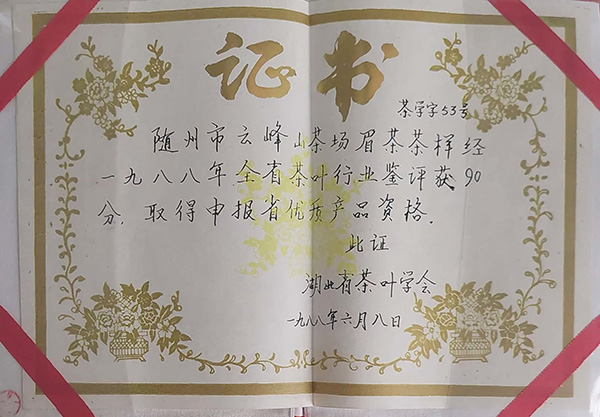 证书
茶学字53号
随州市云峰山茶场眉茶茶样经
一九八八年全省茶叶行业鉴评获90
分，取得申报省优质产品资格．
此证
湖北省茶叶学会
一九八八年六月八日